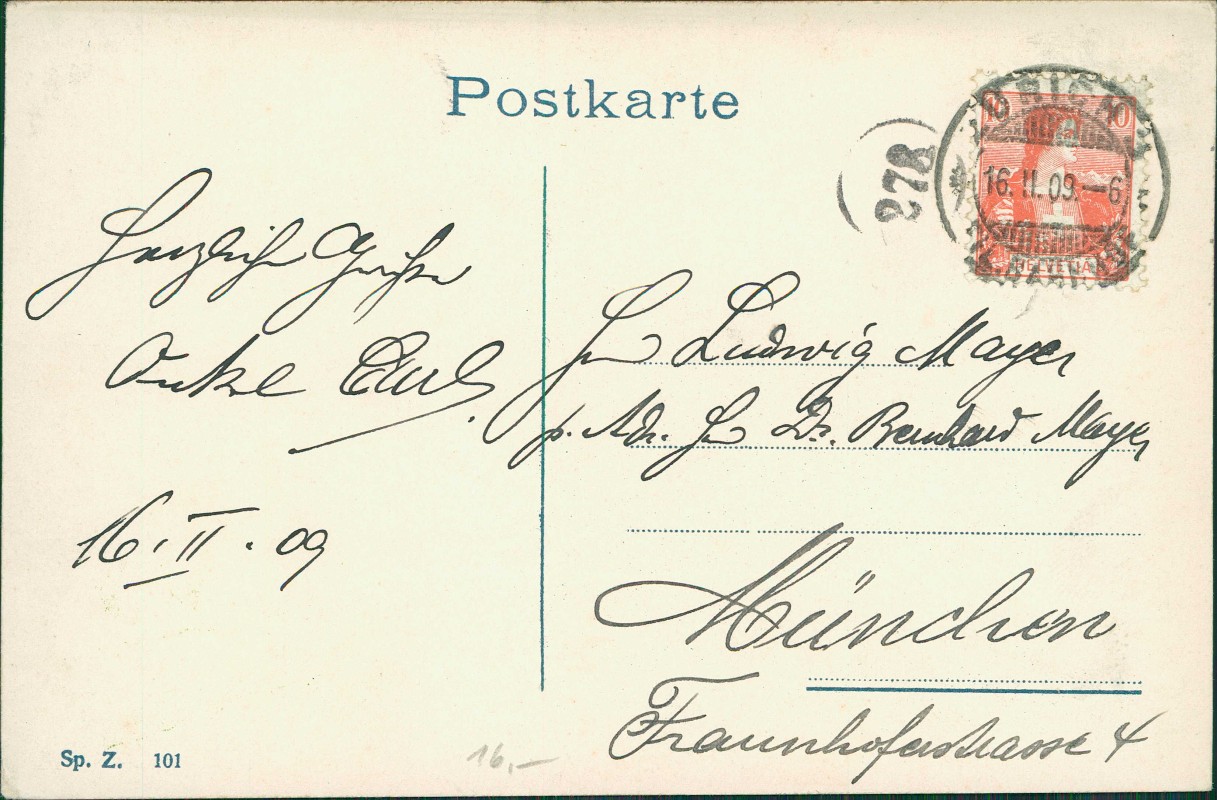 Postkarte
10 10
HELVETIA
16. II. 09. – 6
278
Herzliche Grüße
Onkel
16. II. 09
Hn Ludwig Mayer
p. Adr. Hn Dr. Bernhard Mayer
München
Fraunhoferstrasse 4
Sp. Z. 101
16,–